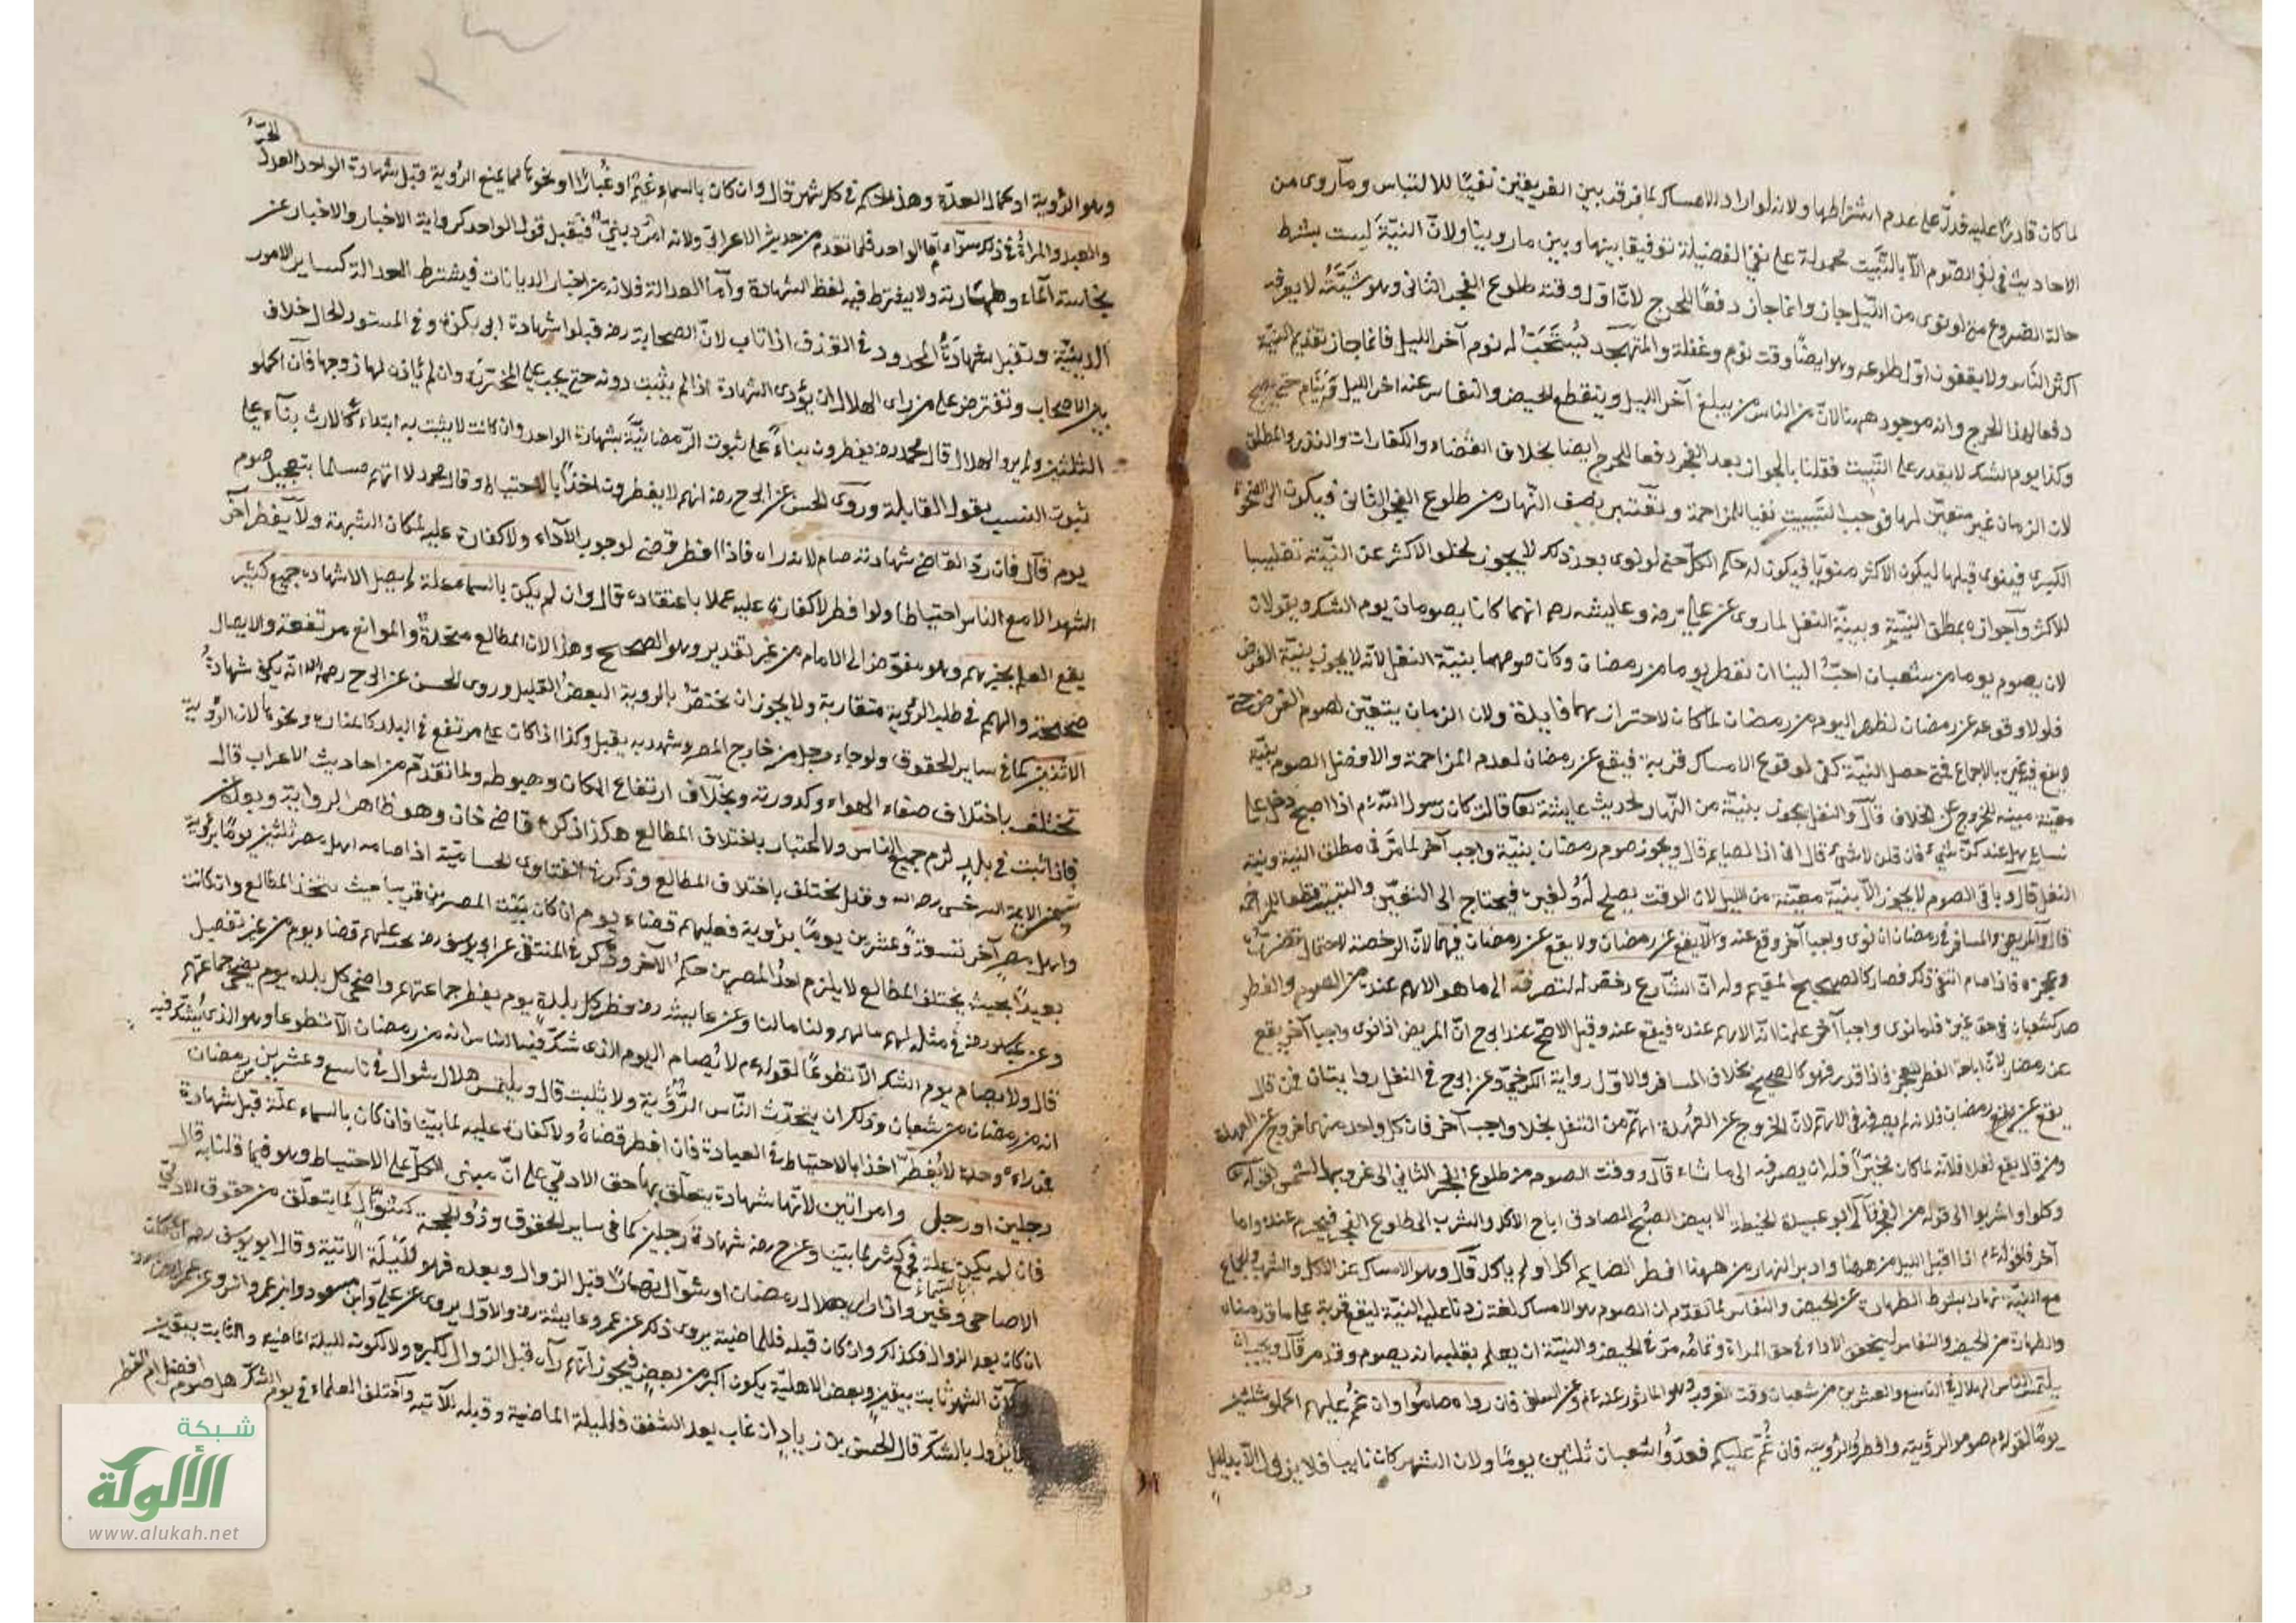 لما كان قادرًا عليه فدلّ على عدم اشتراطها ولانه لو اراد الامساك لما فرق بين الفريقين نفيًا للالتباس وما روى من
الاحاديث في نفي الصّوم الّا بالتّبييت محمولة على نفي الفضيلة توفيقا بينها وبين ما روينا ولانّ النيّة ليست بشرط
حالة الشروع حتى لو نوى من اللّيل جاز وانما جاز دفعًا للحرج لانّ اوّل وقته طلوع الفجر الثانى وهو مشتبه لا يعرفه
اكثر النّاس ولا يقفون اوّل طلوعه وهو ايضًا وقت نوم وغفلة والمتهجّد يُستَحَبّ له نوم آخر الليل فانما جاز تقديم النيّة
دفعا لهذا الحرج وانه موجود ههنا لانّ من الناس من يبلغ آخر الليل وينقطع الحيض والنفاس عند اخر الليل وينام حتى يصبح
وكذا يوم الشك لا يقدر على التبييت فقلنا بالجواز بعد الفجر دفعا للحرج ايضا بخلاف القضاء والكفارات والنذر المطلق
لان الزمان غير متعيّن لها فوجب التبييت نفيا للمزاحمة وتعتبر نصف النّهار من طلوع الفجر الثانى فيكون الى الضحوة
الكبرى فينوى قبلها ليكون الاكثر منويّا فيكون له حكم الكلّ حتى لو نوى بعد ذلك لا يجوز لخلو الاكثر عن النيّة تغليبا
للاكثر وآجوازه بمطلق النيّة وبنيّة النفل لما روى عن عليّ رضه وعايشه رضه انهما كانا يصومان يوم الشك ويقولان
لان نصوم يوما من شعبان احبّ الينا ان نفطر يوما من رمضان وكان صومهما بنيّة النفل لانّه لا يجوز بنيّة الفرض
فلولا وقوعه عن رمضان لو ظهر اليوم من رمضان لما كان لاحترازهما فايدة ولان الزمان يتعيّن لصوم الفرض حتى
لا يقع فيه غيره بالاجماع فمتى حصل النيّة كفى لوقوع الامساك قربة فيقع عن رمضان لعدم المزاحمة والافضل الصوم بنيّة
معيّنة مبيته للخروج عن الخلاف قال والنفل يجوز بنيّة من النّهار لحديث عايشة رضها قالت كان رسول اللّه م اذا اصبح دخل على
نسايه وقال هل عندكنّ شيء فان قلن لا شيء قال انى اذا لصايم قال ويجوز صوم رمضان بنيّة واجب آخر لما مرّ في مطلق النية ونية
النفل قال وباقى الصوم لا يجوز الّا بنيّة معيّنة من الليل لان الوقت يصلح له ولغيره فيحتاج الى التعيّن والتبييت قطعا للمزاحمة
قال والمريض والمسافر في رمضان ان نوى واجبا آخر وقع عنه والّا يقع عن رمضان ولا يقع عن رمضان فيهما لانّ الرخصة لاحتمال تضرّره
وعجزه فاذا صام انتفى ذلك فصار كالصحيح المقيم وله انّ الشّارع رخّص له لتصرفه الى ما هو الاهم عنده من الصوم والفطر
صار كشعبان في حق غيره فلما نوى واجبا آخر علمنا انّه الاهم عنده فيقع عنه وقيل الاصحّ عند ابى ح انّ المريض اذا نوى واجبا آخر يقع
عن رمضان لانّ اباحة الفطر للعجز فاذا قدر فهو كالصحيح بخلاف المسافر والاوّل رواية الكرخىّ وعن ابى ح في النفل روايتان فمن قال
يقع عن رمضان فلانه لم يصرفه في الاهمّ لانّ الخروج عن العهدة اهمّ من النفل بخلاف واجب آخر فان كل واحد منهما خروج عن العهدة
ومن قال يقع نفلا فلانّه لما كان مخيّرًا فله ان يصرفه الى ما شاء قال ووقت الصوم من طلوع الفجر الثاني الى غروب الشمس لقوله تعا
وكلوا واشربوا الى قوله من الفجر قال ابو عبيدة الخيط الابيض الصّبح الصادق اباح الاكل والشرب الى طلوع الفجر فيحرم عنده واما
آخره فلقوله م اذا اقبل الليل من ههنا وادبر النهار من ههنا افطر الصايم اكل او لم ياكل قال وهو الامساك عن الاكل والشرب والجماع
مع النيّة نهارا بشرط الطهارة عن الحيض والنفاس لما تقدّم ان الصوم هو الامساك لغة زدنا عليه النيّة ليقع قربة على ما قدمناه
والطهارة من الحيض والنفاس ليتحقق الاداء في حق المراة وتمامه مرّ في الحيض والنيّة ان يعلم بقلبه انه يصوم وقد مر قال ويجب ان
يلتمس الناس الهلال في التاسع والعشرين من شعبان وقت الغروب وهو الماثور عنه م وعن السلف فان رواه صامُوا وان غمّ عليهم اكملوا ثلثين
يومًا لقوله م صوموا لرؤيته وافطروا لرؤيته فان غُمّ عليكم فعدّوا شعبان ثلثين يومًا ولان الشهر كان ثابتا فلا يزول الّا بدليل
وهو
وهو الرّؤية او كمال العدّة وهذا الحكم في كل شهر قال وان كان بالسماء غيم او غبارًا او نحوها مما يمنع الرّؤية قبل شهادة الواحد العدل الحرّ
والعبد والمراة في ذلك سوآء امّا الواحد فلما تقدم من حديث الاعرابىّ ولانه امر دينىّ فيُقبل قول الواحد كرواية الاخبار والاخبار عن
نجاسة الماء وطهارته ولا يشترط فيه لفظ الشهادة وآما العدالة فلانه من اخبار الديانات فيشترط العدالة كساير الامور
الدينيّة وتقبل شهادةُ المحدود في القذف اذا تاب لانّ الصحابة رضه قبلوا شهادة ابى بكرة وفي المستور الحال خلاف
بين الاصحاب وتفترض على من راى الهلال ان يؤدى الشهادة اذا لم يثبت دونه حتى يجب على المخدّرة وان لم ياذن لها زوجها فان اكملوا
الثلثين ولم يروا الهلال قال محمد رضه يفطرون بناءً على ثبوت الرّمضانيّة بشهادة الواحد وان كانت لا يثبت به ابتداء كالارث بناء على
ثبوت النسب بقول القابلة وروى الحسن عن ابى ح رضه انهم لا يفطرون اخذًا بالاحتياط وقال محمد لا اتهم مسلما بتعجيل صوم
يوم قال فان ردّ القاضى شهادته صام لانه راه فاذا افطر قضى لوجوب الآداء ولا كفارة عليه لمكان الشبهة ولا يفطر آخر
الشهر الا مع الناس احتياطا ولو افطر لا كفارة عليه عملا باعتقاده قال وان لم يكن بالسماء علة لم يقبل الا شهادة جمع كثير
يقع العلم بخبرهم وهو مفوّض الى الامام من غير تقدير وهو الصحيح وهذا لان المطالع متحدة والموانع مرتفعة والابصار
صحيحة والهمم في طلب الرؤية متقاربة ولا يجوز ان يختصّ بالروية البعضُ القليل وروى الحسن عن ابى ح رحمه الله انّه يكفى شهادةُ
الاثنين كما في ساير الحقوق ولو جاء رجل من خارج المصر وشهد به يقبل وكذا اذا كان على مرتفع في البلد كالمنارة ونحوها لان الرؤية
تختلف باختلاف صفاء الهواء وكدورته وبخلاف ارتفاع المكان وهبوطه ولما تقدّم من احاديث الاعراب قال
فاذا ثبت في بلد لزم جميع الناس ولا اعتبار باختلاف المطالع هكذا ذكره قاضى خان وهو ظاهر الرواية وبه قال
شمس الايمة السرخسى رحمه الله وقيل يختلف باختلاف المطالع وذكر في الفتاوى الحسامية اذا صام اهل مصر ثلثين يومًا برؤية
واهل مصر آخر تسعةً وعشرين يومًا برؤية فعليهم قضاء يوم ان كان بين المصرين قرب بحيث يتحد المطالع وان كانت
بعيدًا بحيث يختلف المطالع لا يلزم احدُ المصرين حكمُ الآخر وذكر في المنتقى عن ابى يوسف رضه يجب عليهم قضاء يوم من غير تفصيل
وعن عباس رضه في مثله لهم ما لهم ولنا ما لنا وعن عايشه رضه فطر كل بلدة يوم يفطر جماعتهم واضحى كل بلده يوم يضحى جماعتهم
قال ولا يصام يوم الشك الّا تطوعًا لقوله م لا يُصام اليوم الذى شكّ فيه الناس انه من رمضان الّا تطوعا وهو الذى يُشكّ فيه
انه من رمضان من شعبان وذلك ان يتحدّث النّاس الرُّؤية ولا يثبت قال ويلتمس هلال شوال في تاسع وعشرين من رمضان
فمن راه وحده لا يُفطر اخذا بالاحتياط في العبادة فان افطر قضاهُ ولا كفارة عليه لما بيّنا فان كان بالسماء علة قبل شهادة
رجلين او رجل وامراتين لانّها شهادة يتعلّق بها حق الادمىّ على انّ مبنى الكلّ على الاحتياط وهو فيما قلنا به قال
فان لم يكن بالسماء علة فجمع كثير لما بيّنا وعن ح رضه شهادة رجلين كما في ساير الحقوق وذو الحجة كشوّال لما يتعلق من حقوق الادمى
الاضاحى وغيره واذا راى هلال رمضان او شوّال نهارًا قبل الزوال وبعده فهو للّيلة الاتية وقال ابو يوسف رحمه الله
ان كان بعد الزوال فكذلك وان كان قبله فللماضية يروى ذلك عن عمر وعايشة رضه والاوّل يروى عن علىّ وابن مسعود وابن عمر وانس وعن عمر
ولانّ الشهر ثابت بيقين وبعض الاهلّة يكون اكبر من بعض فيجوز انّهم راَه قبل الزوال لكبره لا لكونه لليلة الماضيه والثابت بيقين
لا يزول بالشكّ قال الحسن بن زياد ان غاب بعد الشفق فلليلة الماضية وقبله للآتيه واختلف العلماء في يوم الشكّ هل صومه افضل ام الفطر
شبكة
الألوكة
www.alukah.net